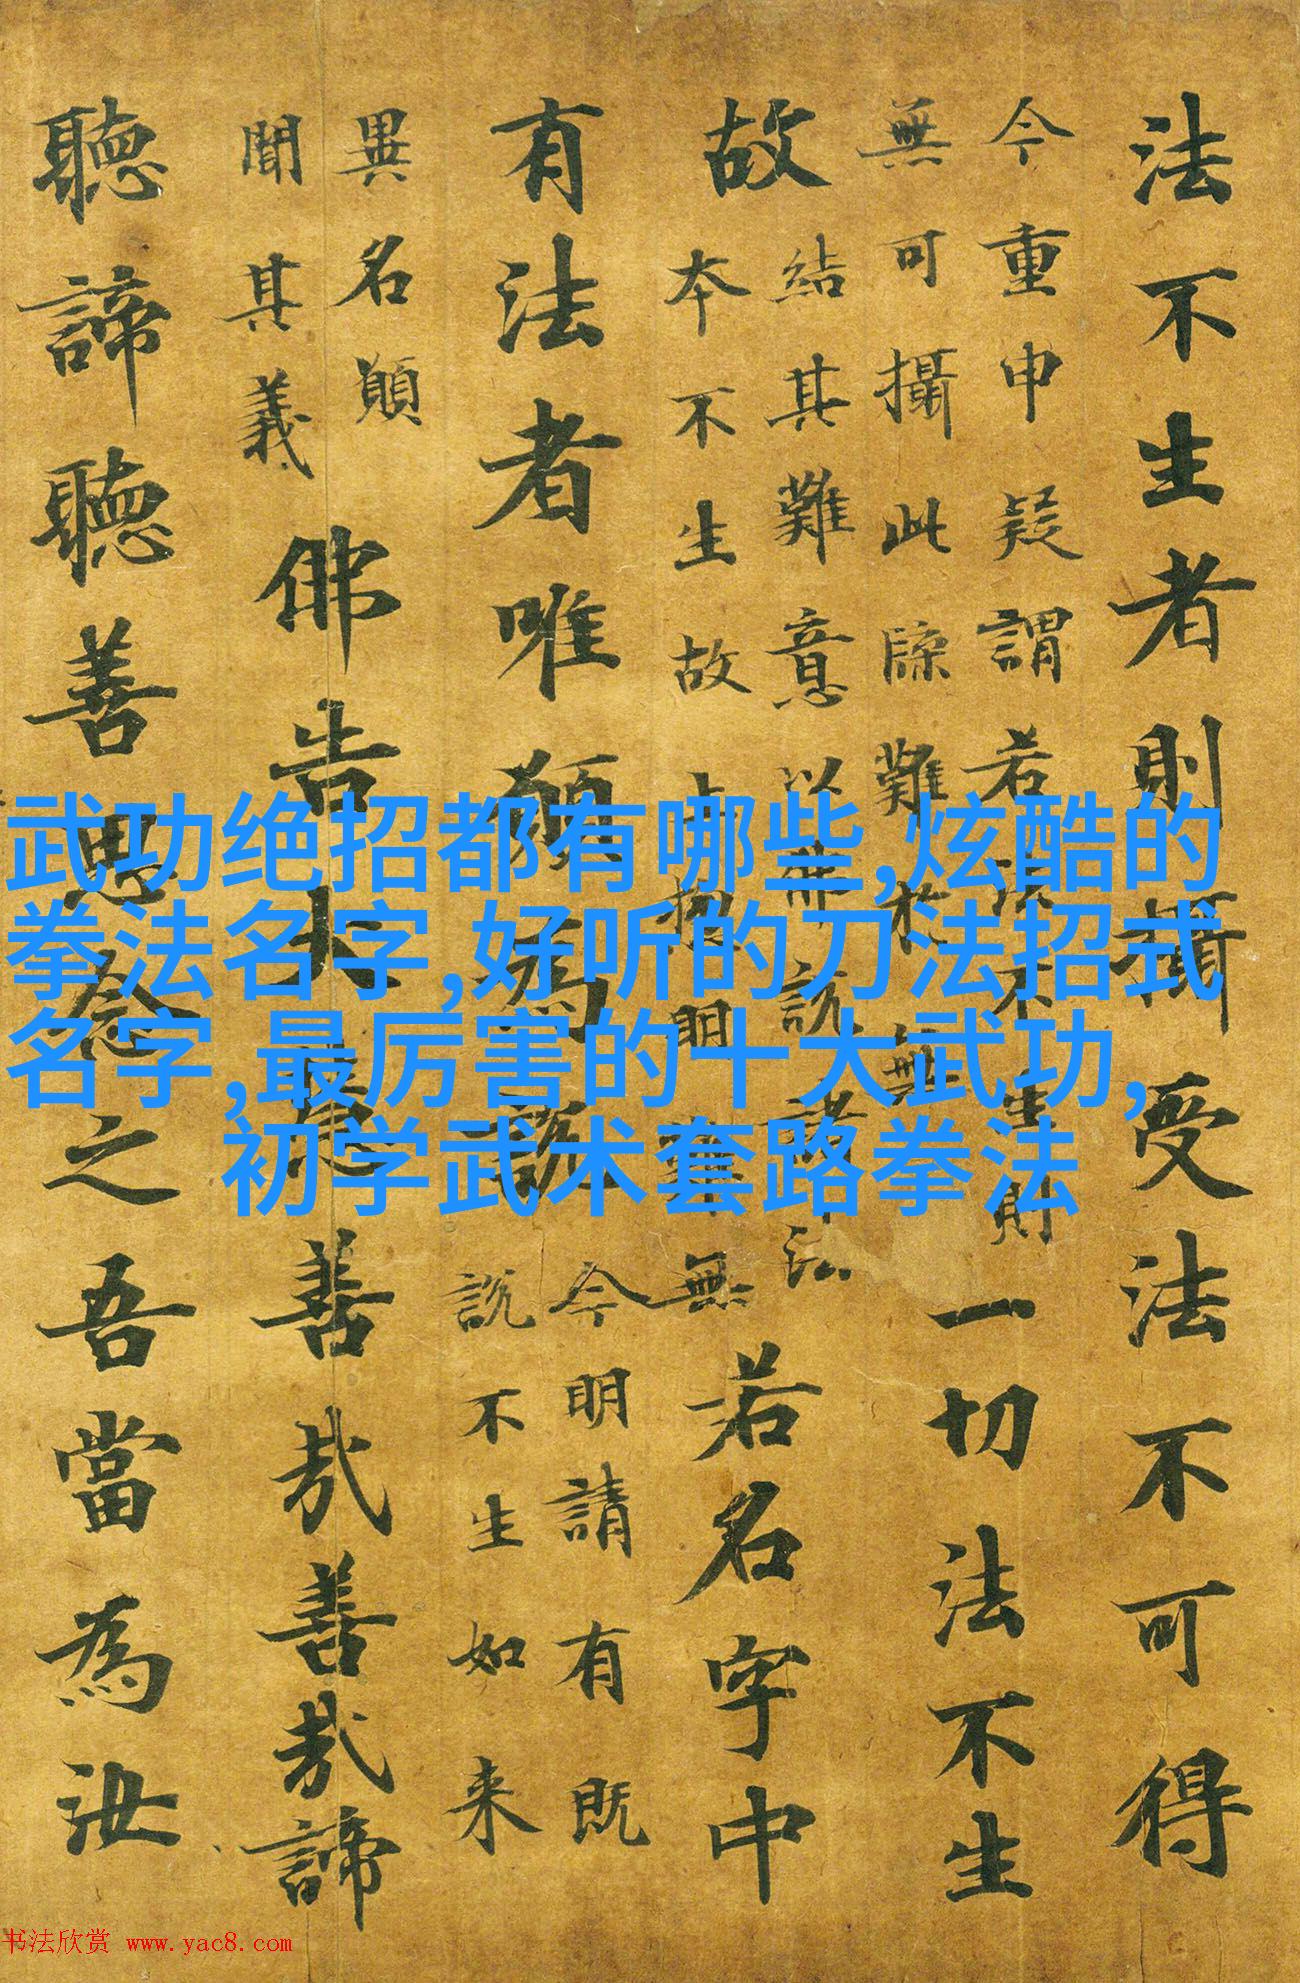 法不生者則攝受法不可得
今重申疑謂若法不生則
無可攝此牒難於無
一切法不生
故
結其難意以說諸法
本不生故明無
若名字中
有法者唯願為說
今明請有既
說不生如来
異名願
聞其義
佛告大慧善哉善哉諦
聽諦聽善思念之吾當為汝
武功绝招都有哪些,炫酷的
拳法名字,好听的刀法招式
名字,最厉害的十大武功,
初学武术套路拳法
书法欣赏 www.yac8.com